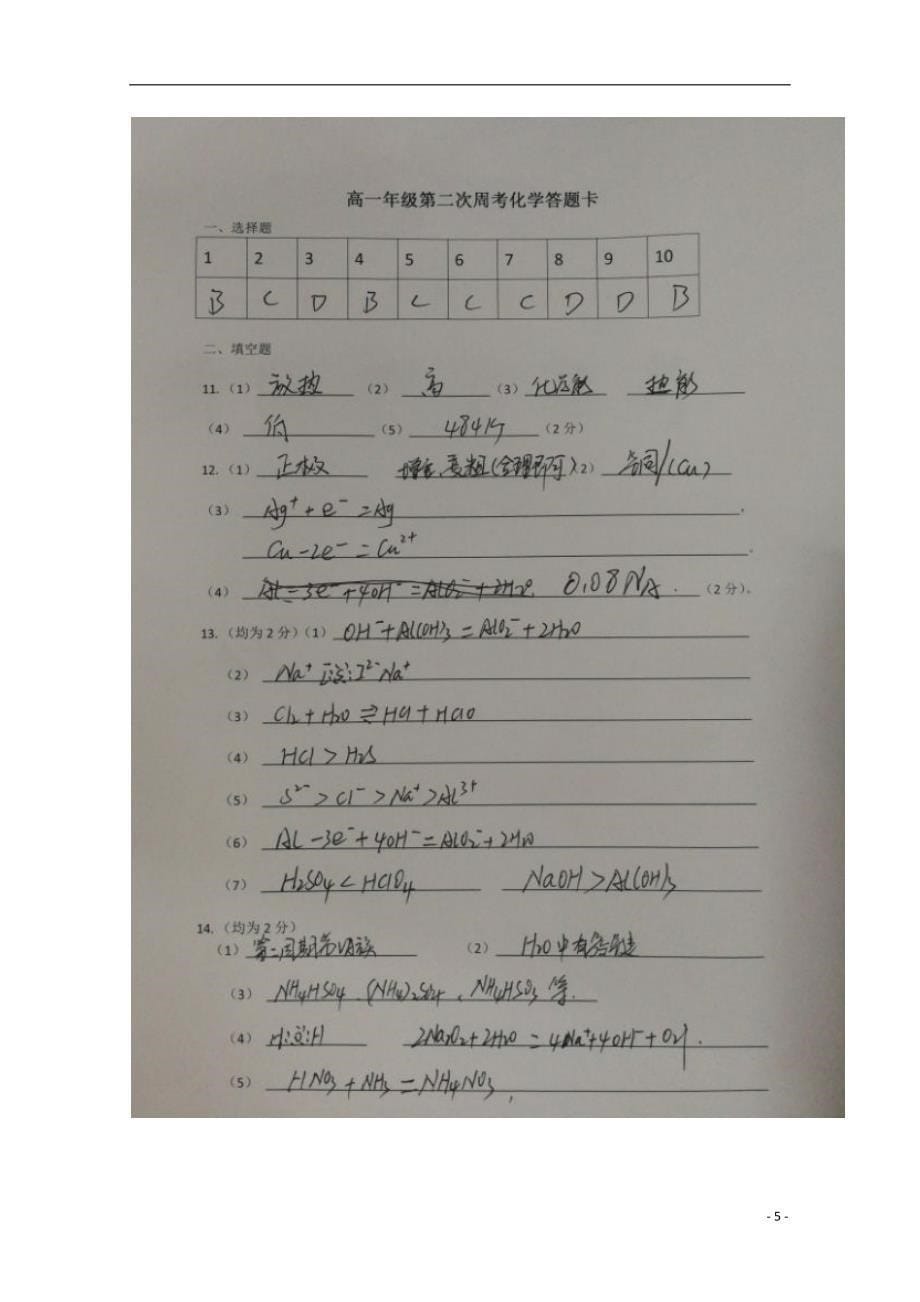 高一年级第二次周考化学答题卡
一、选择题
1 2 3 4 5 6 7 8 9 10
B C D B C C C D D B
二、填空题
11.（1）放热（2）高（3）化学能 热能
（4）低（5）484kJ（2分）
12.（1）正极 增重、变粗(合理即可)（2）铜/(Cu)
（3）Ag⁺+e⁻=Ag
Cu-2e⁻=Cu²⁺。
（4）0.08NA.（2分）。
13.（均为2分）（1）OH⁻+Al(OH)₃=AlO₂⁻+2H₂O
（2）Na⁺[:S:]²⁻Na⁺
（3）Cl₂+H₂O⇌HCl+HClO
（4）HCl>H₂S
（5）S²⁻>Cl⁻>Na⁺>Al³⁺
（6）Al-3e⁻+4OH⁻=AlO₂⁻+2H₂O
（7）H₂SO₄<HClO₄ NaOH>Al(OH)₃
14.（均为2分）
（1）第二周期第VIA族（2）H₂O中有氢键
（3）NH₄HSO₄、(NH₄)₂SO₄、NH₄HSO₃等.
（4）H:O:H 2Na₂O₂+2H₂O=4Na⁺+4OH⁻+O₂↑.
（5）HNO₃+NH₃=NH₄NO₃
- 5 -